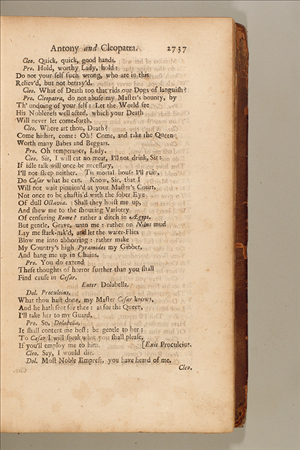 Antony and Cleopatra. 2737
Cleo. Quick, quick, good hands.
Pro. Hold, worthy Lady, hold:
Do not your self such wrong, who are in this
Reliev'd, but not betray'd.
Cleo. What of Death too that rids our Dogs of languish?
Pro. Cleopatra, do not abuse my Master's bounty, by
Th' undoing of your self: Let the World see
His Nobleness well acted, which your Death
Will never let come forth.
Cleo. Where art thou, Death?
Come hither, come: Oh! Come, and take the Queen
Worth many Babes and Beggars.
Pro. Oh temperance, Lady.
Cleo. Sir, I will eat no meat, I'll not drink, Sir:
If idle talk will once be necessary,
I'll not sleep neither. To mortal house I'll ruin,
Do Cæsar what he can. Know, Sir, that I
Will not wait pinnion'd at your Master's Court,
Nor once be chastis'd with the sober Eye
Of dull Octavia. Shall they hoist me up,
And shew me to the shouting Varlotry
Of censuring Rome? rather a ditch in Ægypt.
But gentle, Grave, unto me: rather on Nilus mud
Lay me stark-nak'd, and let the water-Flies
Blow me into abhorring: rather make
My Country's high Pyramides my Gibbet,
And hang me up in Chains.
Pro. You do extend
These thoughts of horror further than you shall
Find cause in Cæsar.
Enter Dolabella.
Dol. Proculeius,
What thou hast done, my Master Cæsar knows,
And he hath for thee: as for the Queen,
I'll take her to my Guard.
Pro. So, Dolabella,
It shall content me best: be gentle to her;
To Cæsar I will speak what you shall please,
If you'll employ me to him. [Exit Proculeius.
Cleo. Say, I would die.
Dol. Most Noble Empress, you have heard of me.
Cleo.